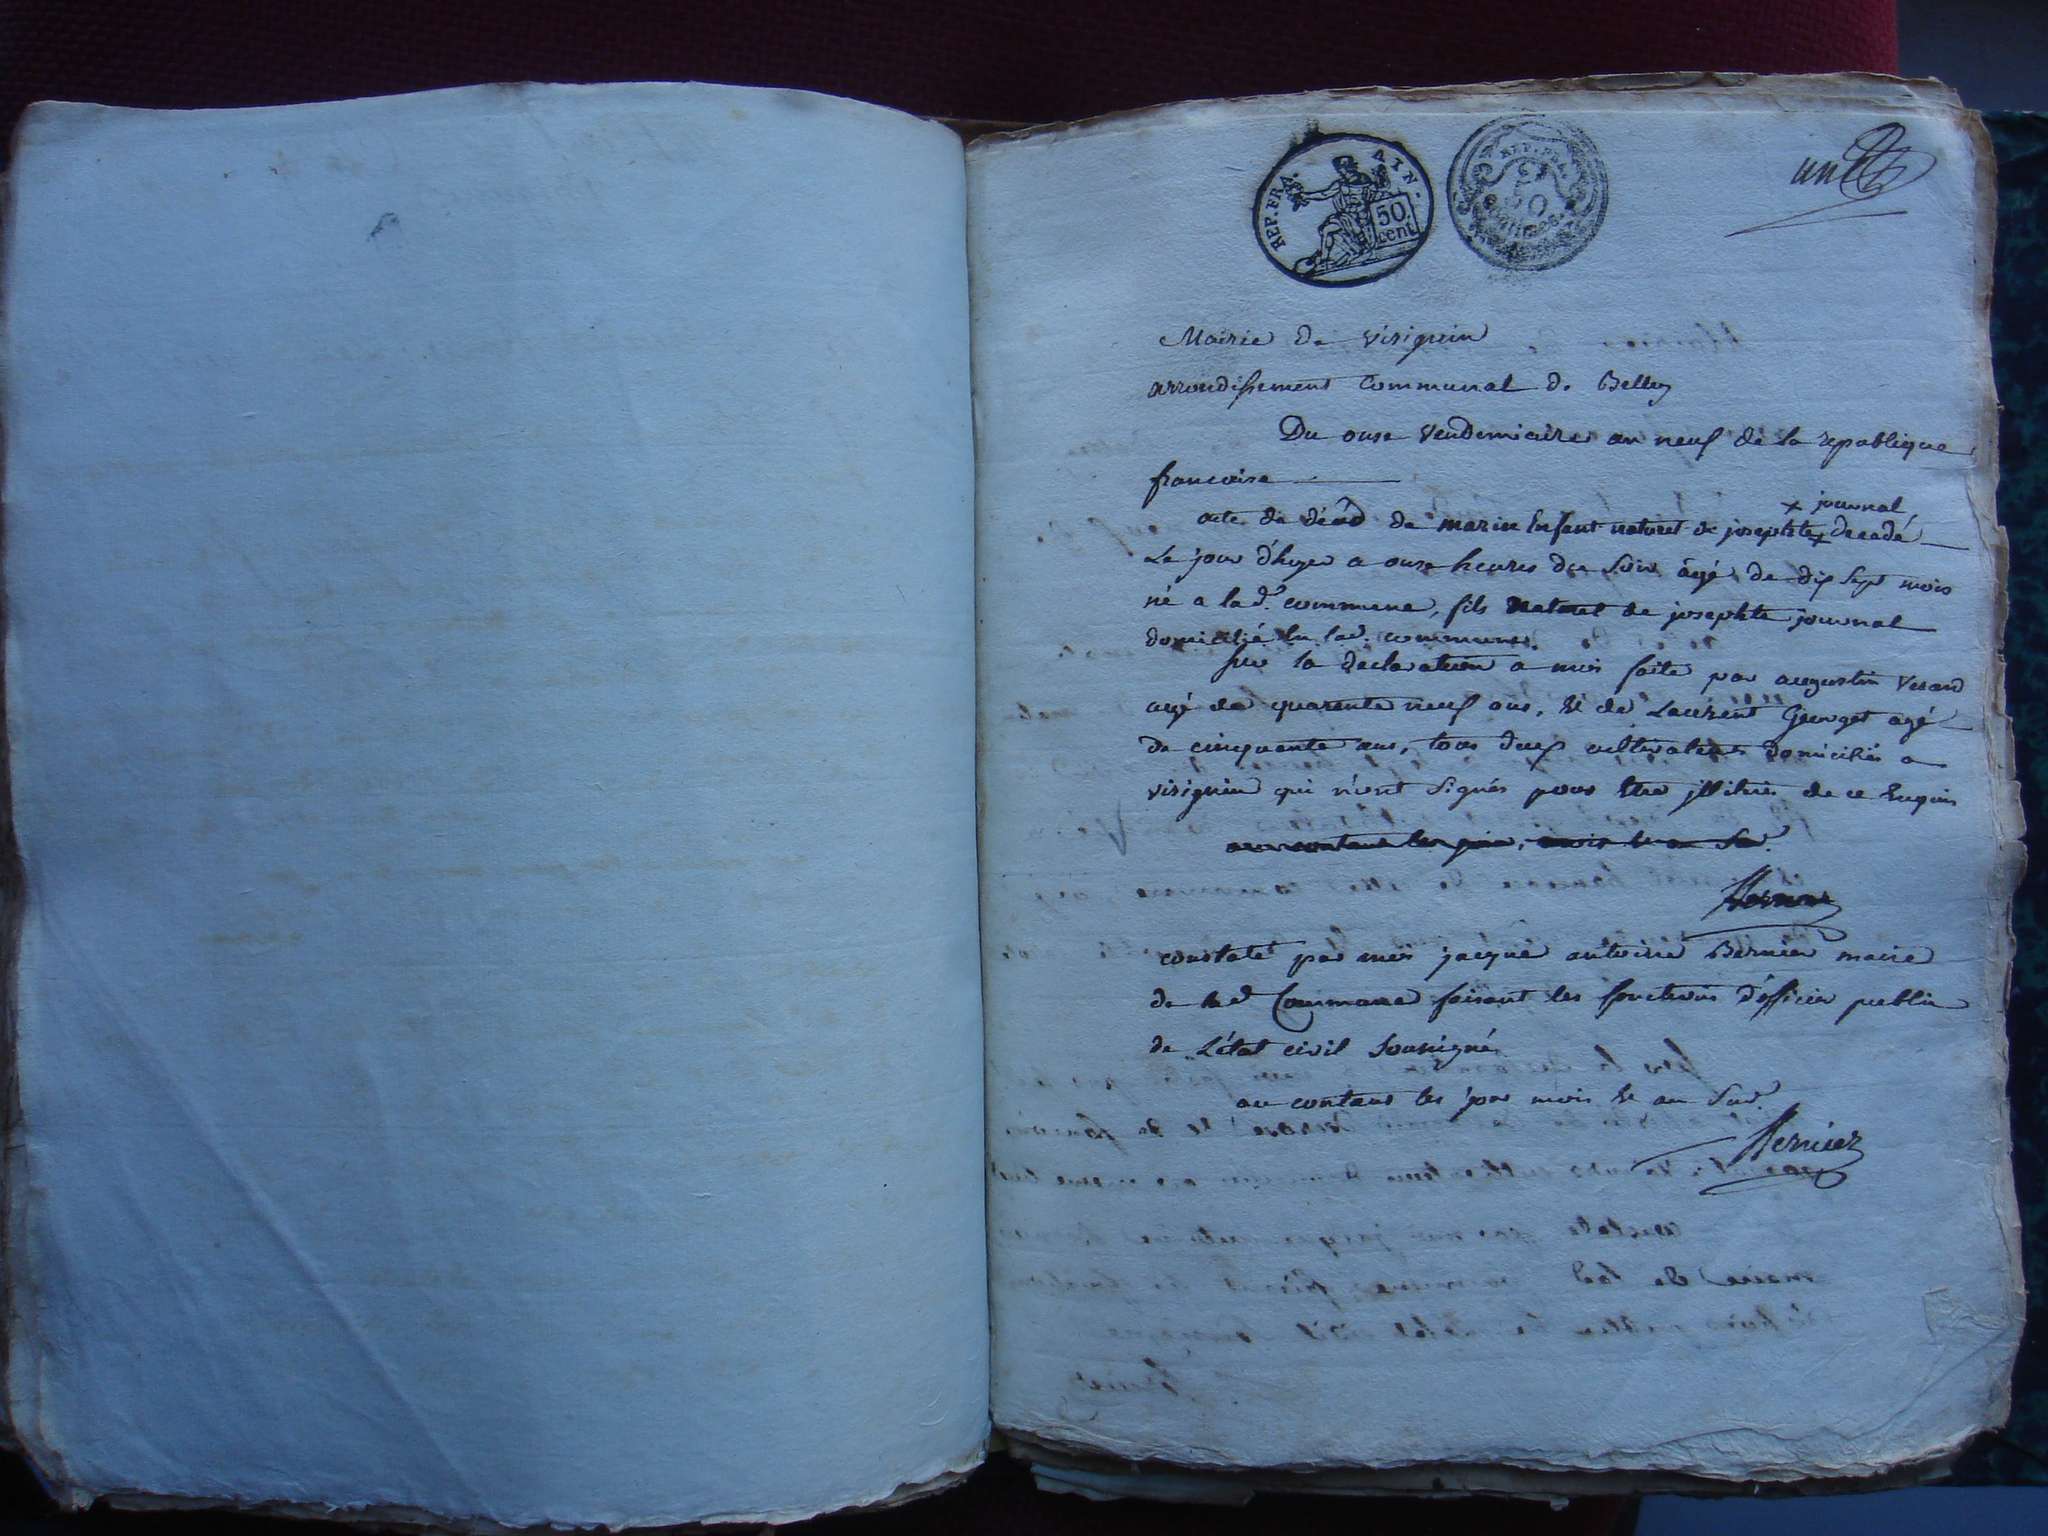 REP. FRA. AIN.
50 cent.
REP. FRA.
50 centimes.
un
Mairie de virignin
arrondissement Communal de Belley
Du onse vendemiaire an neuf de la republique
francoise
x journal
acte de décéd de marin Enfant naturel de josephte x decedé
Le jour d'hyer a onse heures du soir âgé de dix sept mois
né a lad. commune, fils naturel de josephte journal
domicilié En lad. commune.
sur la declaration a moi faite par augustin
agé de quarente neuf ans, et de Laurent Georget agé
de cinquante ans, tous deux cultivateurs domiciliés a
virignin qui n'ont signés pour Etre illitirés de ce Enquis
constaté par moi jacque antoine Bernier maire
de lad Commune faisant les fonctions d'officier public
de L'état civil Sousigné
au contant les jour mois et an Sud.
Bernier